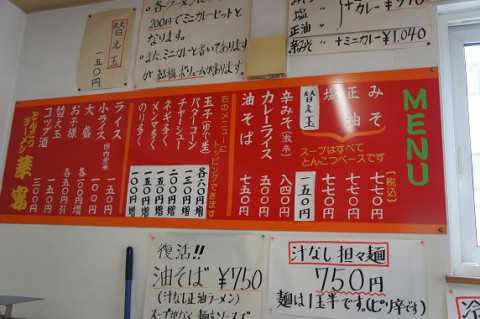 大盛
替え玉
一五〇円
各ラーメンに
200円でミニカレーセットと
なります。
・また、ミニカレーと書いてあります
が、結構ボリュームがあります
塩
正油
＋カレー
辛みそ ＋ミニカレー ¥1,040
MENU
【税込】
スープはすべて
とんこつベースです
みそ 七七〇円
正油 七七〇円
塩 七七〇円
替え玉 一五〇円
辛みそ(激辛) 八四〇円
カレーライス 七五〇円
油そば 七五〇円
右のメニューにトッピングできます
玉子(ゆで・生) 各六〇円増
バターコーン 一三〇円増
チャーシュー 二五〇円増
メンマ多く 一五〇円増
ネギ多く 一五〇円増
のり多く 一〇〇円増
ライス 一五〇円
小ライス 一〇〇円
国内産米
大盛 一〇〇円増
お子様 各五〇円引
替え玉 一五〇円
コップ酒 三〇〇円
とんこつラーメン
復活!!
油そば ¥750
(汁なし正油ラーメン)
スープがなく 麺をソースで
汁なし 担々麺
750円
麺は1玉半です。(ピリ辛です)
冷